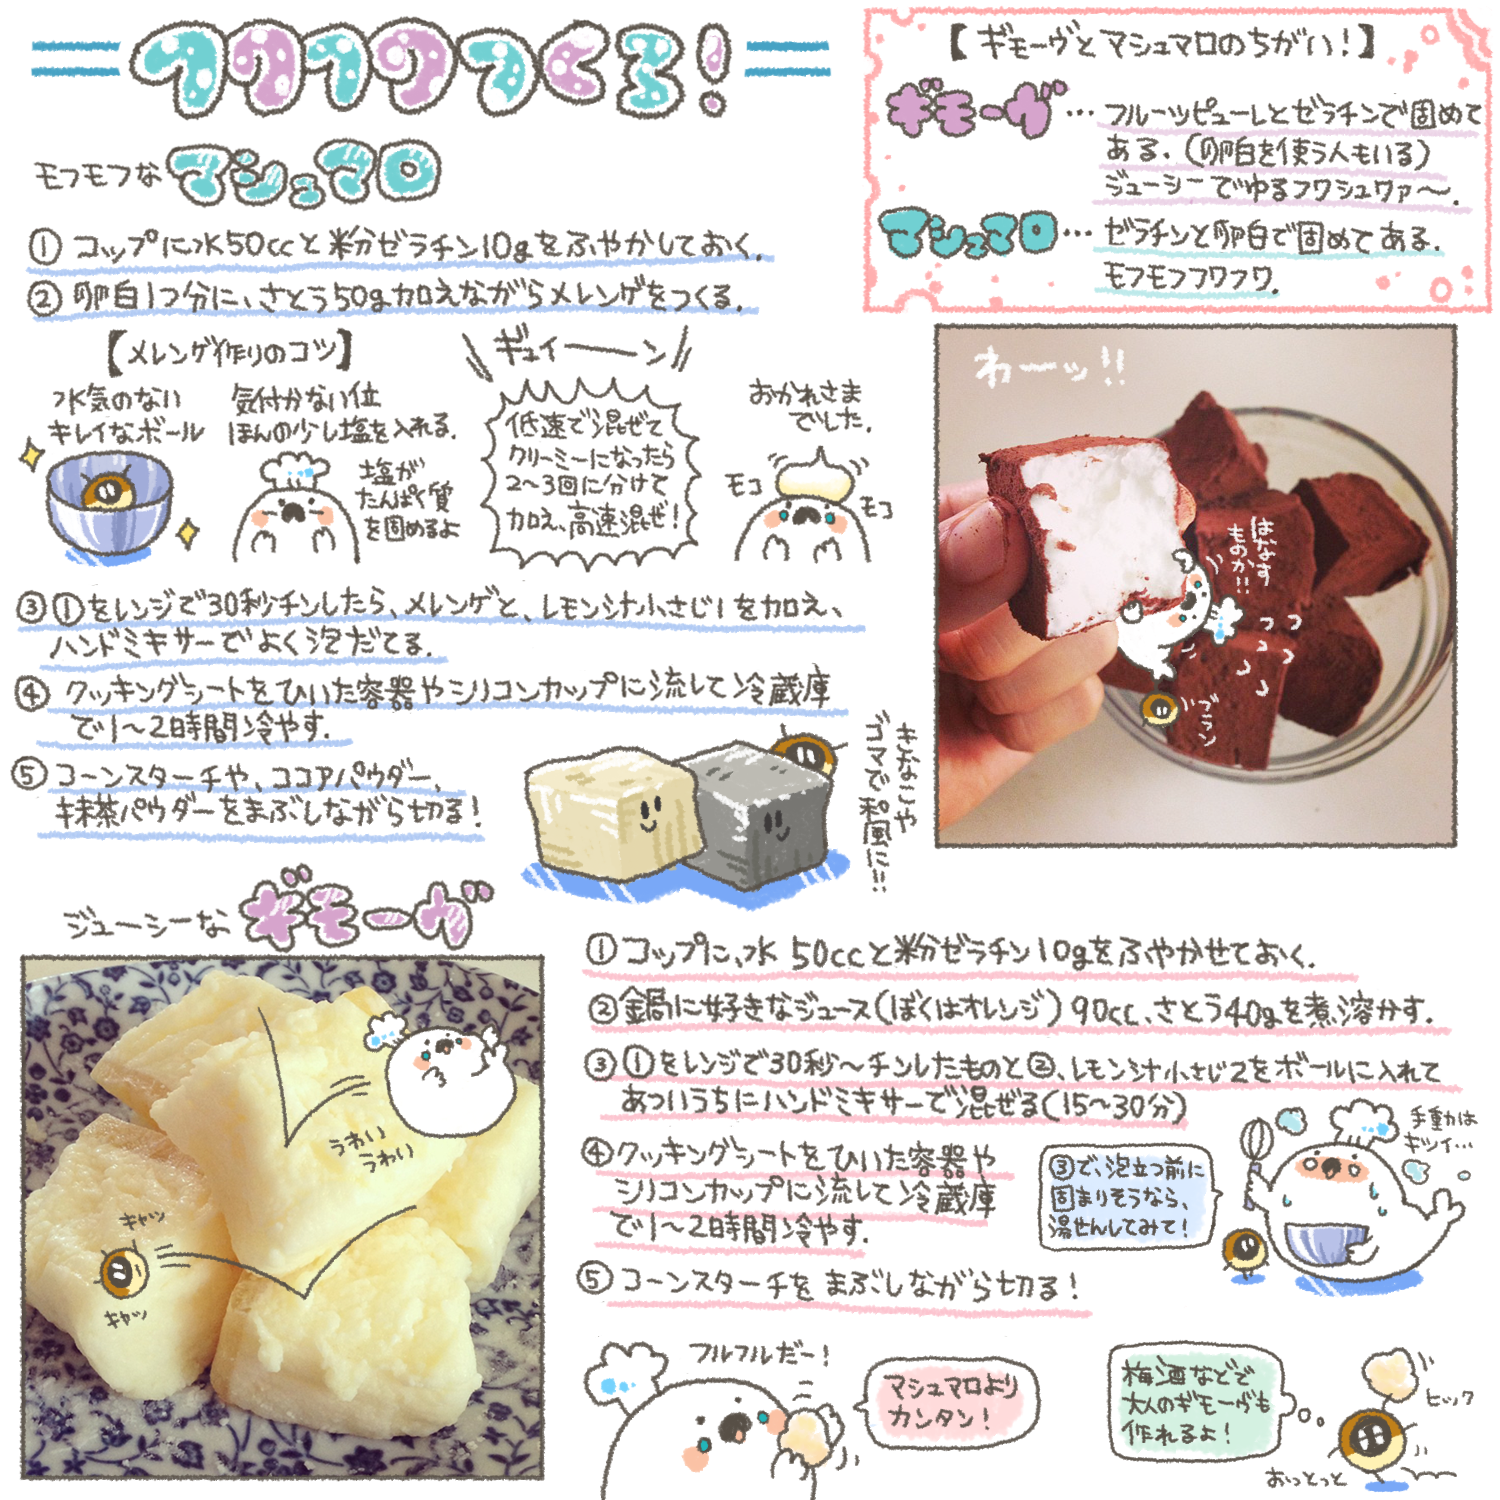 フワフワつくる!
モフモフなマシュマロ
①コップに水50ccと粉ゼラチン10gをふやかしておく.
②卵白1つ分に、さとう50g加えながらメレンゲをつくる.
【メレンゲ作りのコツ】
水気のない
キレイなボール
気付かない位
ほんの少し塩を入れる.
塩が
たんぱく質
を固めるよ
ギュイーーン
低速で混ぜて
クリーミーになったら
2〜3回に分けて
加え、高速混ぜ!
おかれさま
でした.
モコ
モコ
③①をレンジで30秒チンしたら、メレンゲと、レモン汁小さじ1を加え、
ハンドミキサーでよく泡だてる.
④クッキングシートをひいた容器やシリコンカップに流して冷蔵庫
で1〜2時間冷やす.
⑤コーンスターチや、ココアパウダー、
抹茶パウダーをまぶしながら切る!
きなこや
ゴマで和風に!!
【ギモーヴとマシュマロのちがい!】
ギモーヴ…フルーツピューレとゼラチンで固めて
ある.(卵白を使う人もいる)
ジューシーでゆるフワシュワァ〜.
マシュマロ…ゼラチンと卵白で固めてある.
モフモフフワフワ.
わーッ!!
はなす
ものか!!
ブラン
ジューシーなギモーヴ
うわい
うわい
キャッ
キャッ
①コップに、水50ccと粉ゼラチン10gをふやかせておく.
②鍋に好きなジュース(ぼくはオレンジ)90cc、さとう40gを煮溶かす.
③①をレンジで30秒〜チンしたものと②、レモン汁小さじ2をボールに入れて
あついうちにハンドミキサーで混ぜる(15〜30分)
④クッキングシートをひいた容器や
シリコンカップに流して冷蔵庫
で1〜2時間冷やす.
⑤コーンスターチをまぶしながら切る!
③で、泡立つ前に
固まりそうなら、
湯せんしてみて!
手動は
キツイ…
フルフルだー!
マシュマロより
カンタン!
梅酒などで
大人のギモーヴも
作れるよ!
ヒック
おっとっと